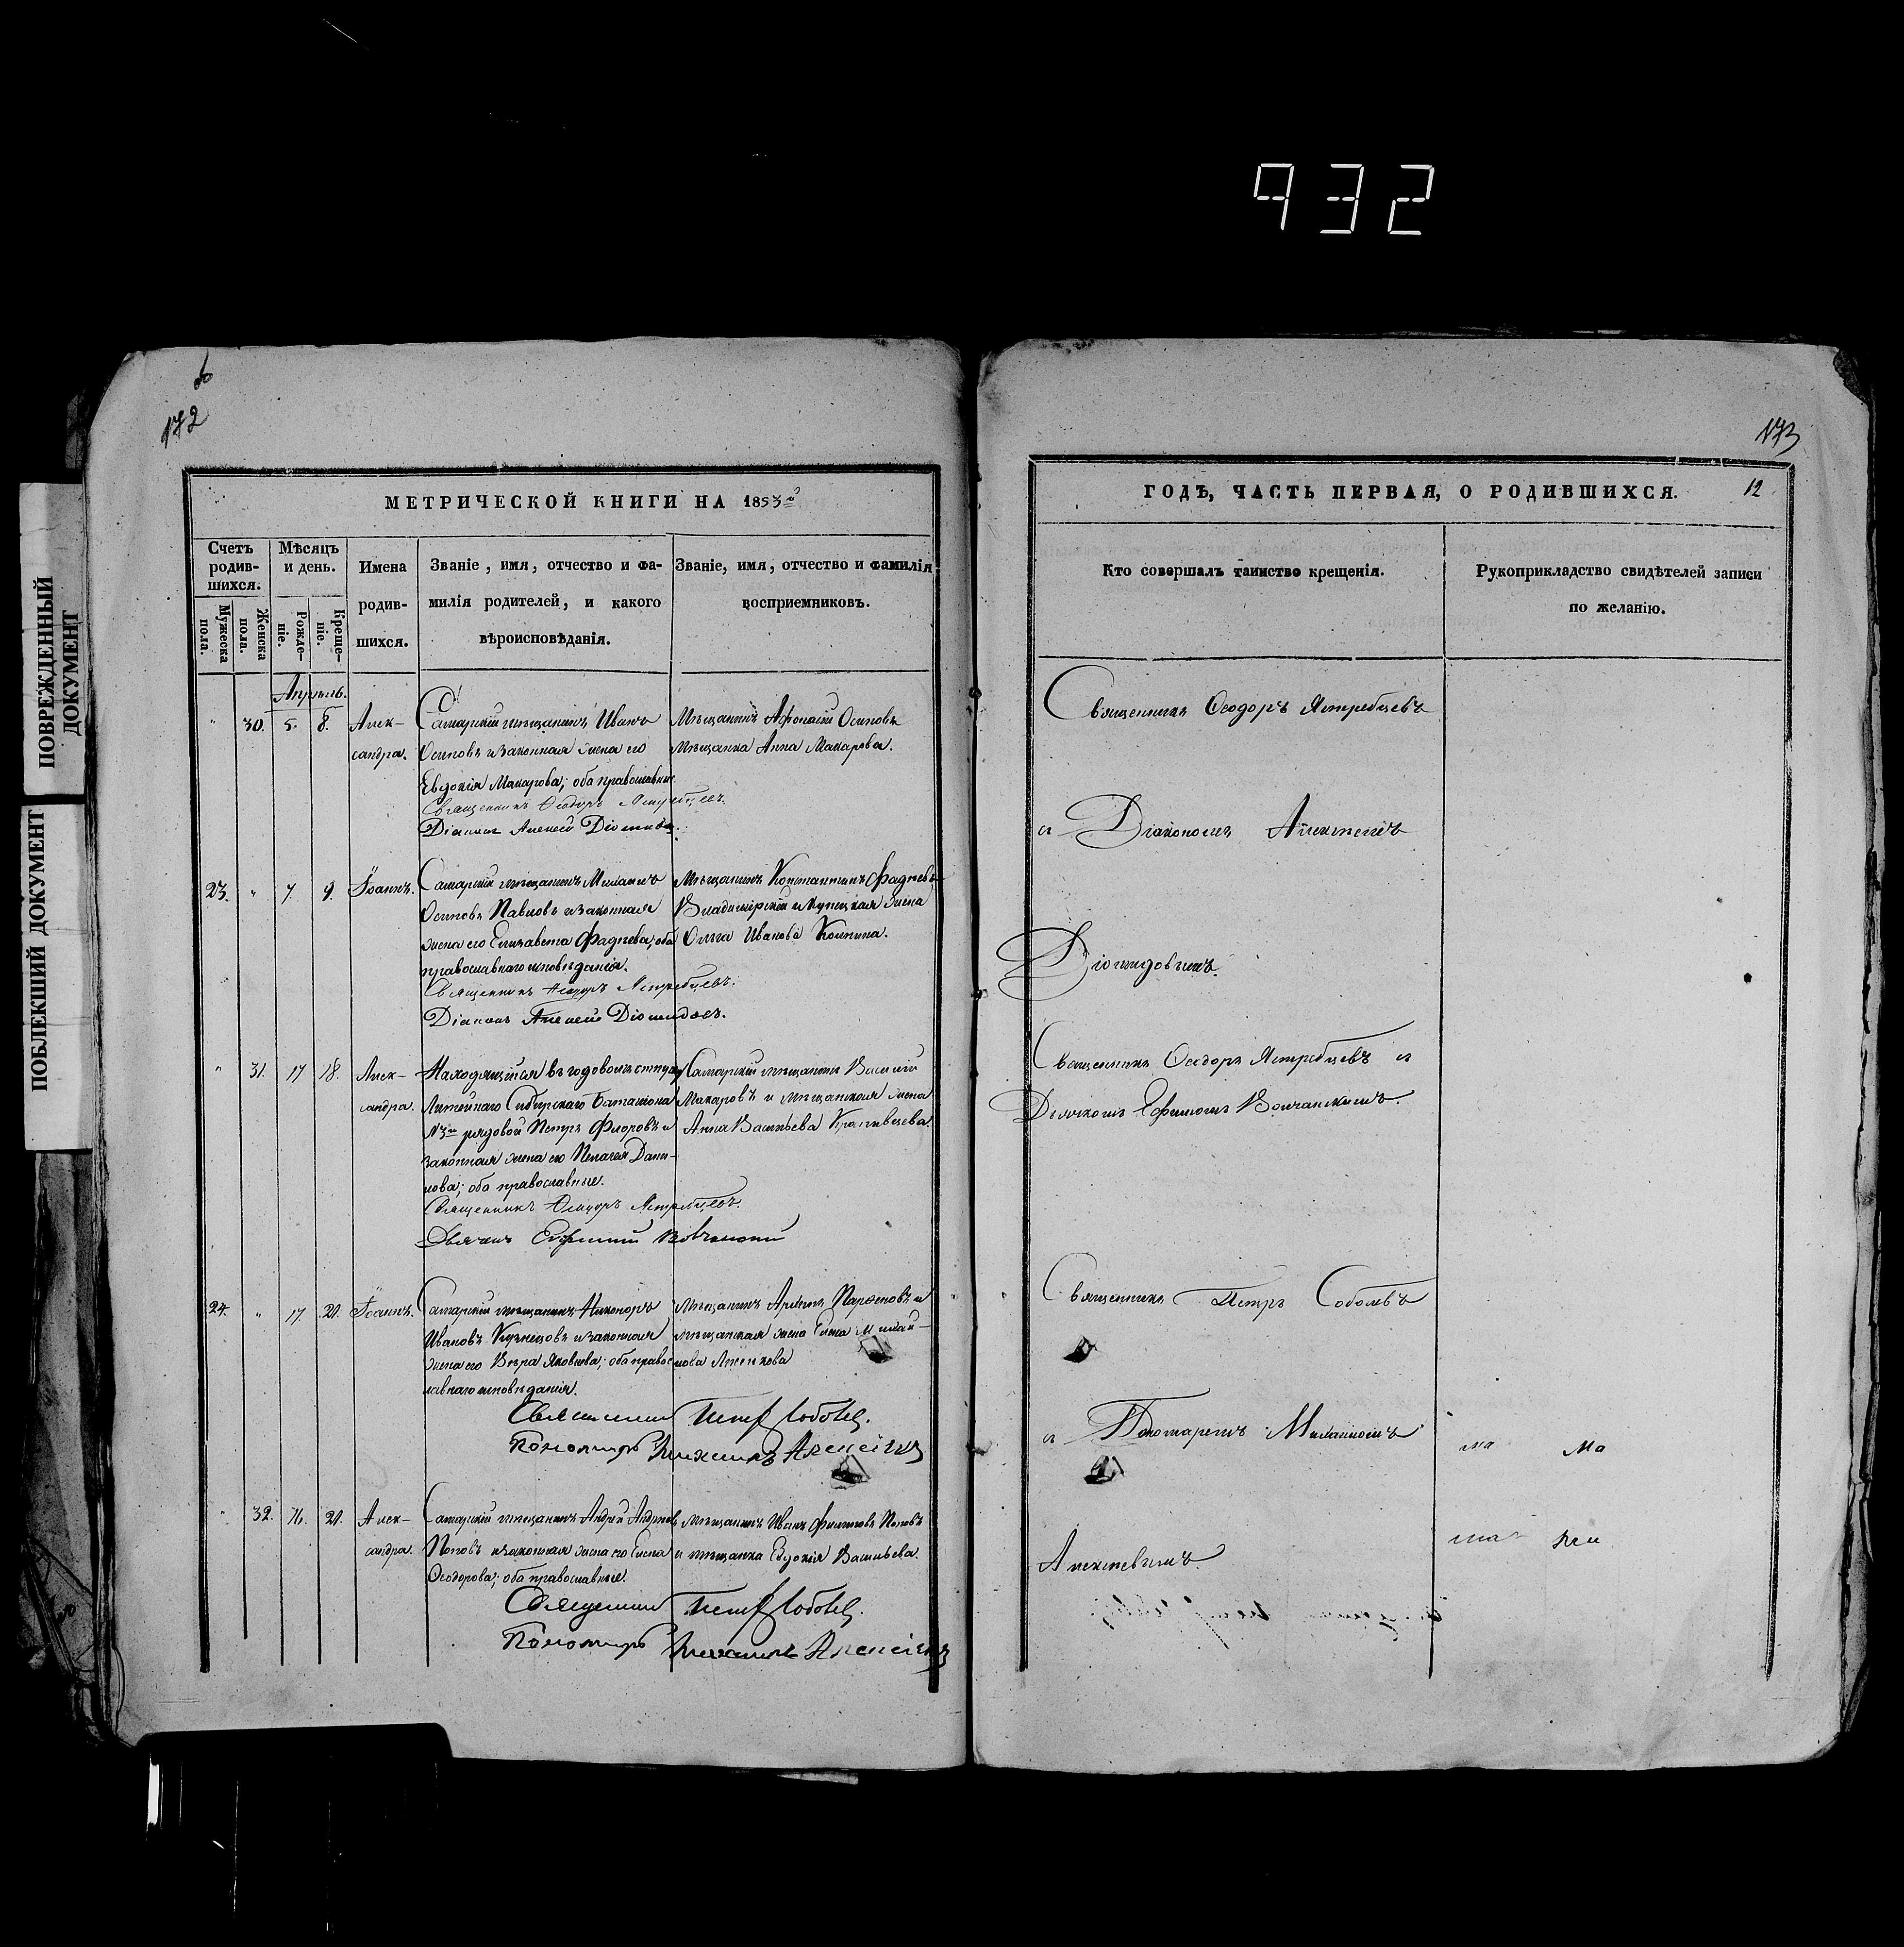 932
ПОВРЕЖДЕННЫЙ
ДОКУМЕНТ
ПОБЛЕКШИЙ ДОКУМЕНТ
172
МЕТРИЧЕСКОЙ КНИГИ НА 1853й
Счетъ родившихся.
Мужеска пола.
Женска пола.
Мѣсяцъ и день.
Рожде-
ніе.
Креще-
ніе.
Имена
родив-
шихся.
Званіе, имя, отчество и фа-
милія родителей, и какого
вѣроисповѣданія.
Званіе, имя, отчество и фамилія
восприемниковъ.
Апрѣль.
" 30. 5. 8. Алек-
сандра.
Самарскій мѣщанинъ Иванъ
Осиповъ и законная жена его
Евдокія Макарова; оба православные
Священникъ Ѳеодоръ Ястребцевъ.
Діаконъ Алексей Діомидовъ.
Мѣщанинъ Афонасій Осиповъ
мѣщанка Анна Макарова.
23. " 7. 9. Іоаннъ.
Самарскій мѣщанинъ Михаилъ
Осиповъ Павловъ и законная
жена его Елизавета Фадѣева; оба
православнаго исповѣданія.
Священникъ Ѳеодоръ Ястребцевъ.
Діаконъ Алексей Діомидовъ.
Мѣщанинъ Константинъ Фадѣевъ
Владимірскій и купецкая жена
Ольга Иванова
" 31. 17 18. Алек-
сандра.
Находящійся въ годовомъ
Линейнаго Сибирскаго Баталіона
рядовой Петръ Флоровъ и
законная жена его Пелагея Дани-
лова; оба православные.
Священникъ Ѳеодоръ Ястребцевъ.
Дьячекъ Ефимій Волчанскій
Самарскій мѣщанинъ Василій
Макаровъ и мѣщанская жена
Анна Васильева
24. " 17. 20. Іоаннъ.
Самарскій мѣщанинъ Никоноръ
Ивановъ Кузнецовъ и законная
жена его Вѣра Яковлева; оба правос
лавнаго исповѣданія.
Священникъ Петръ Соболевъ.
Пономарь Михаилъ Алексѣевъ
Мѣщанинъ Парѳеновъ и
мѣщанская жена Елена Михай-
лова
" 32. 16. 20. Алек-
сандра.
Самарскій мѣщанинъ Андрей Андреевъ
Поповъ и законная жена его Елена
Ѳеодорова; оба православные.
Священникъ Петръ Соболевъ.
Пономарь Михаилъ Алексѣевъ
мѣщанинъ Иванъ Филиповъ Поповъ
и мѣщанка Евдокія Васильева.
173
ГОДЪ, ЧАСТЬ ПЕРВАЯ, О РОДИВШИХСЯ.
12
Кто совершалъ таинство крещенія.
Рукоприкладство свидѣтелей записи
по желанію.
Священникъ Ѳеодоръ Ястребцевъ
съ Діакономъ Алексѣемъ
Діомидовымъ.
Священникъ Ѳеодоръ Ястребцевъ съ
Дьячкомъ Ефимомъ Волчанскимъ.
Священникъ Петръ Соболевъ
съ Пономаремъ Михаиломъ
Алексѣевымъ